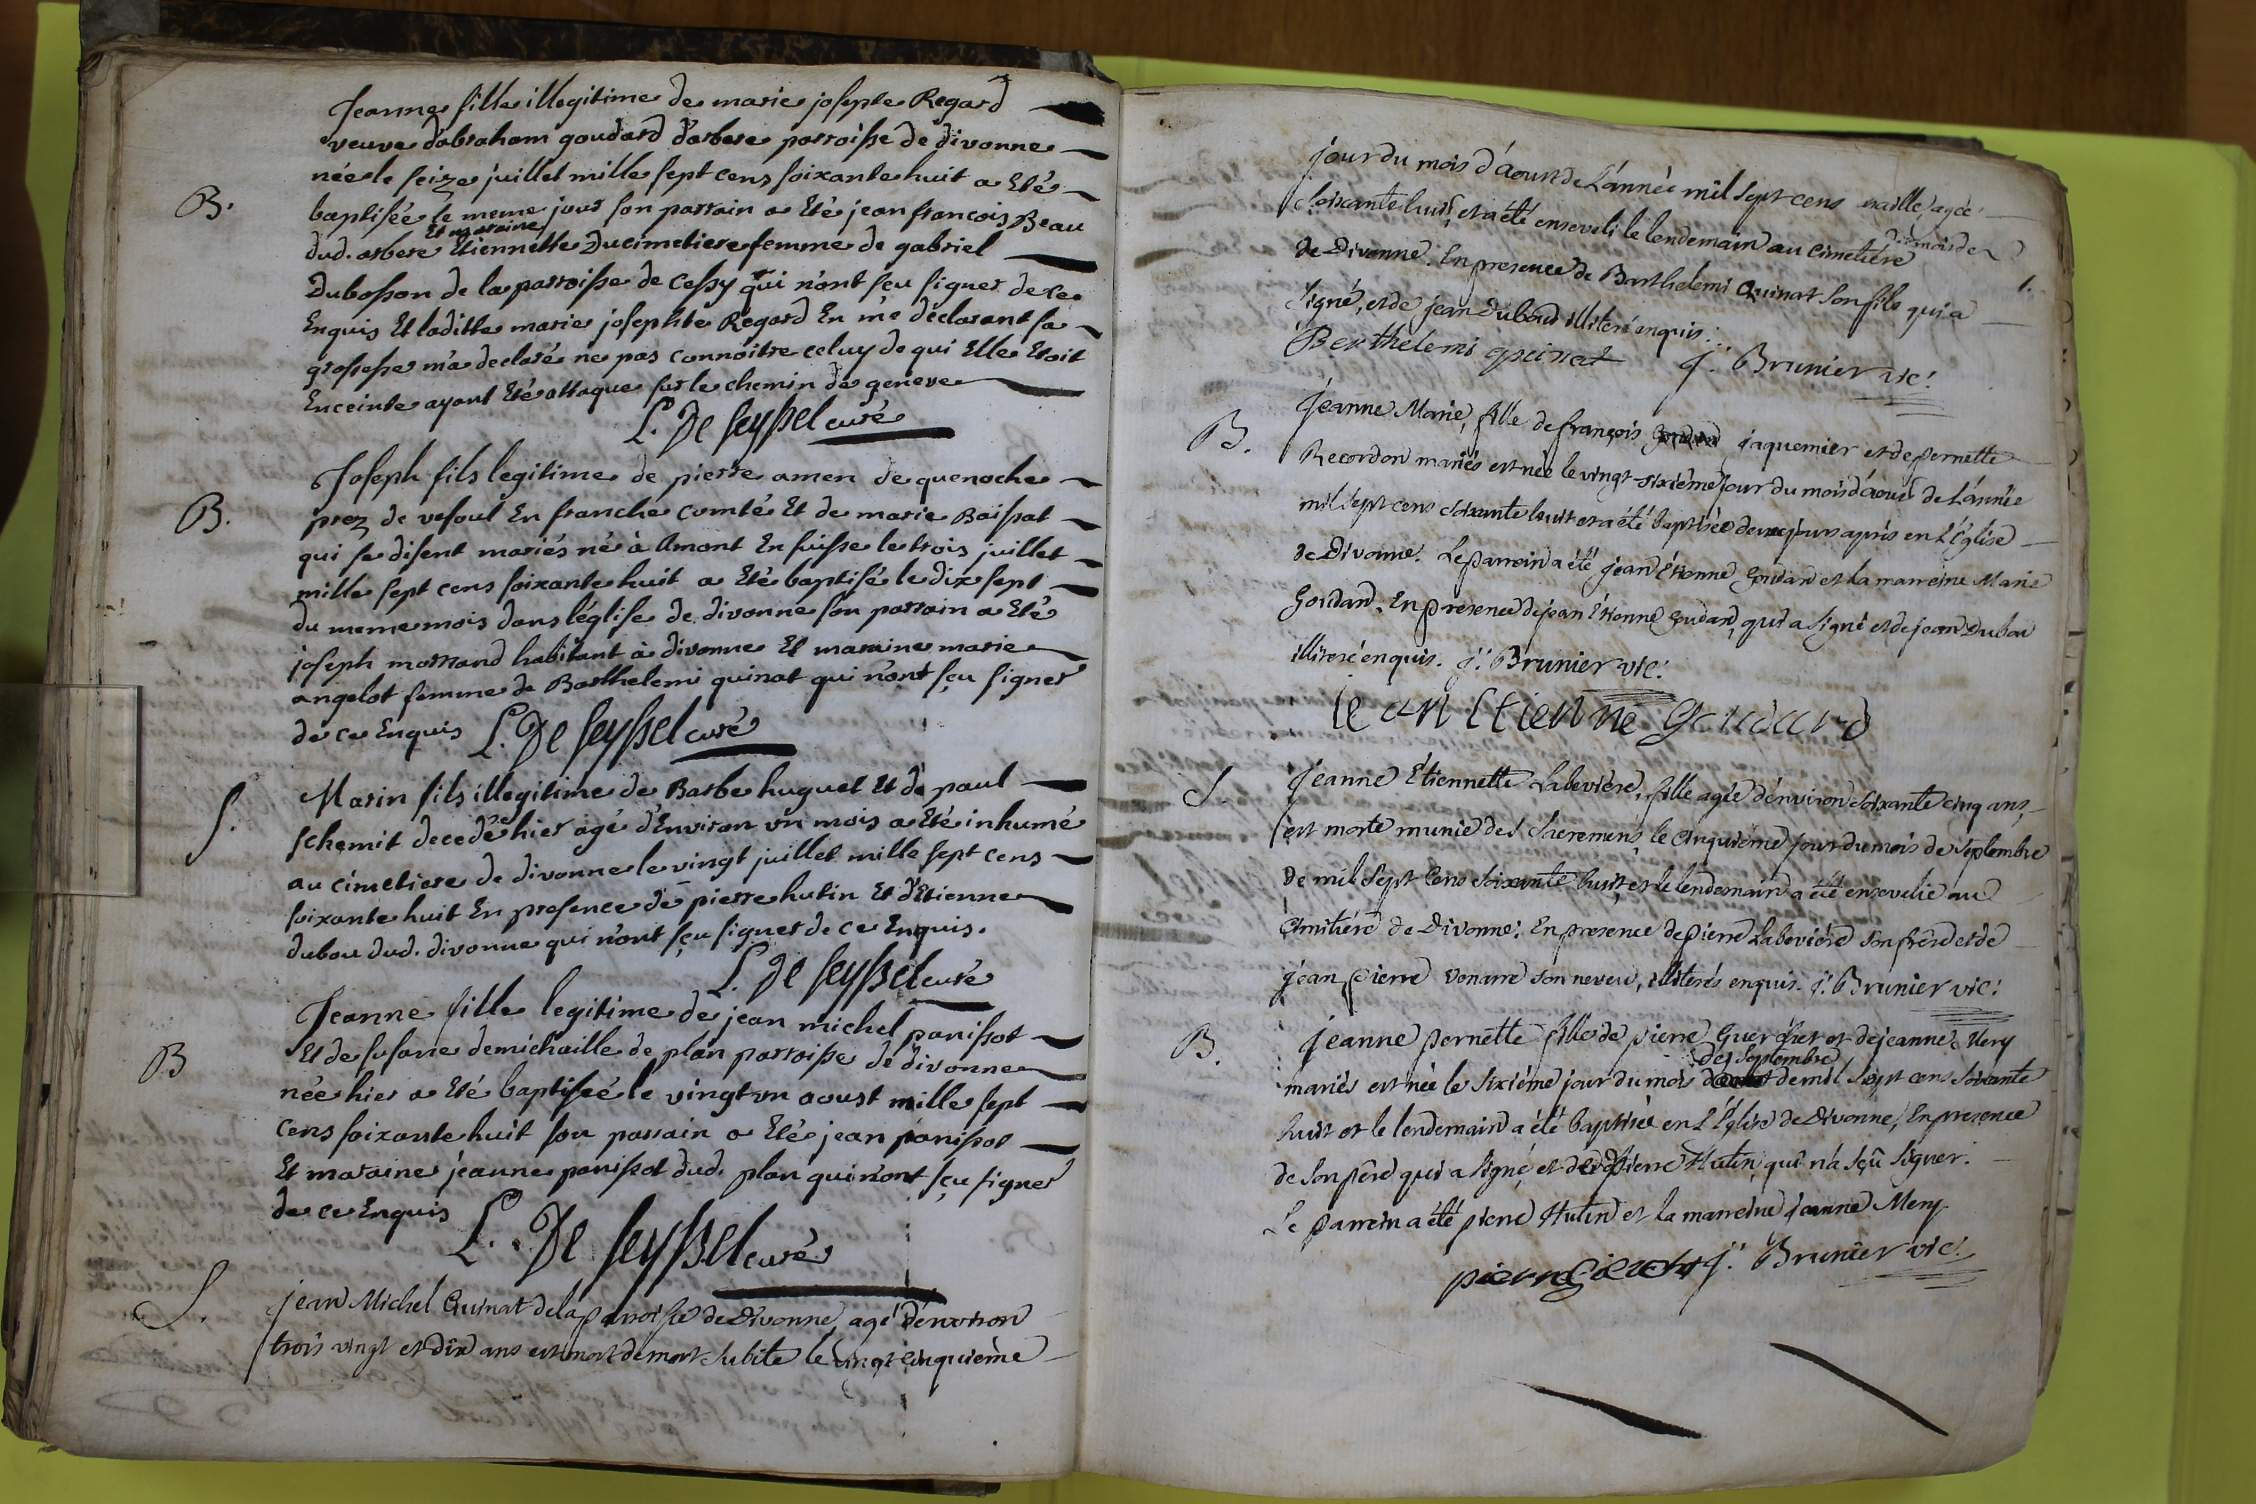 Jeanne fille illegitime de marie josepte Regard
veuve d'abraham goudard d'arbere parroisse de divonne
née le seize juillet mille sept cens soixante huit a Eté
B.
baptisée le meme jour son parrain a Eté jean francois Beau
Et maraine
dud. arbere Etiennette Ducimetiere femme de gabriel
Dubosson de la parroisse de Cessy qui n'ont sçu signer de ce
Enquis Et laditte marie josephte Regard En me déclarant sa
grossesse m'a declaré ne pas connoitre celuy de qui Elle Etoit
Enceinte ayant Eté attaque sur le chemin de geneve
L. De seyssel curé
Joseph fils legitime de pierre amen de quenoche
B.
prez de vesoul En franche comté Et de marie Boissat
qui se disent mariés né à Amont En suisse le trois juillet
mille sept cens soixante huit a Eté baptisé le dix sept
du meme mois dans l'église de divonne son parrain a Eté
joseph marrand habitant à divonne Et maraine marie
angelot femme de Barthelemi quinat qui n'ont sçu signer
de ce Enquis L. De seyssel curé
Marin fils illegitime de Barbe huguet Et de paul
S.
schemit decedé hier agé d'Environ un mois a Eté inhumé
au cimetiere de divonne le vingt juillet mille sept cens
soixante huit En presence de pierre hutin Et d'Etienne
dubou dud. divonne qui n'ont sçu signer de ce Enquis.
L. De seyssel curé
Jeanne fille legitime de jean michel panissot
Et de susane demichaille de plan parroisse de divonne
B
née hier a Eté baptiseé le vingt un aoust mille sept
cens soixante huit son parrain a Eté jean panissot
Et maraine jeanne panissot dud. plan qui n'ont sçu signer
de ce Enquis
L. De seyssel curé
S.
jean Michel Quinat de la parroisse de Divonne, agé d'environ
trois vingt et dix ans est mort de mort subite le vingt cinquième
jour du mois d'aoust de L'année mil sept cens
soixante huit, et a été enseveli le lendemain au Cimetière
de Divonne. En presence de Barthelémi Quinat son fils qui a
signé, et de jean Dubout illiteré enquis.
Berthelemi quinat j. Brunier vic.
Jeanne Marie, fille de françois jaquemier et de pernette
B.
Recordon mariés est née le vingt-sixième jour du mois d'aoust de L'année
mil sept cens soixante huit et a été baptisée deux jours après en L'Église
de Divonne. Le parroin a été jean Étienne Goudard et la marreine Marie
Goudard. En presence de jean Étienne Goudard, qui a signé et de jean Dubou
illiteré enquis. j. Brunier vic.
iean Etienne Goudard
S.
Jeanne Étiennette Labeviére, fille agée d'environ soixante cinq ans,
est morte munie des sacremens le cinquiéme jour du mois de septembre
de mil sept cens soixante huit et le lendemain a été ensevelie au
Cimitiére de Divonne. En presence de Pierre Labeviére son frère et de
jean Pierre Vonarre son neveu, illiterés enquis. j. Brunier vic.
B.
jeanne pernette fille de pierre et de jeanne Mery
de septembre
mariés est née le sixiéme jour du mois de mil sept cens soixante
huit et le lendemain a été baptisée en L'Église de Divonne, En presence
de son père qui a signé, et de Pierre Hutin, qui n'a sçu signer.
Le parrein a été pierre Hutin et la marreine jeanne Mery.
j. Brunier vic.